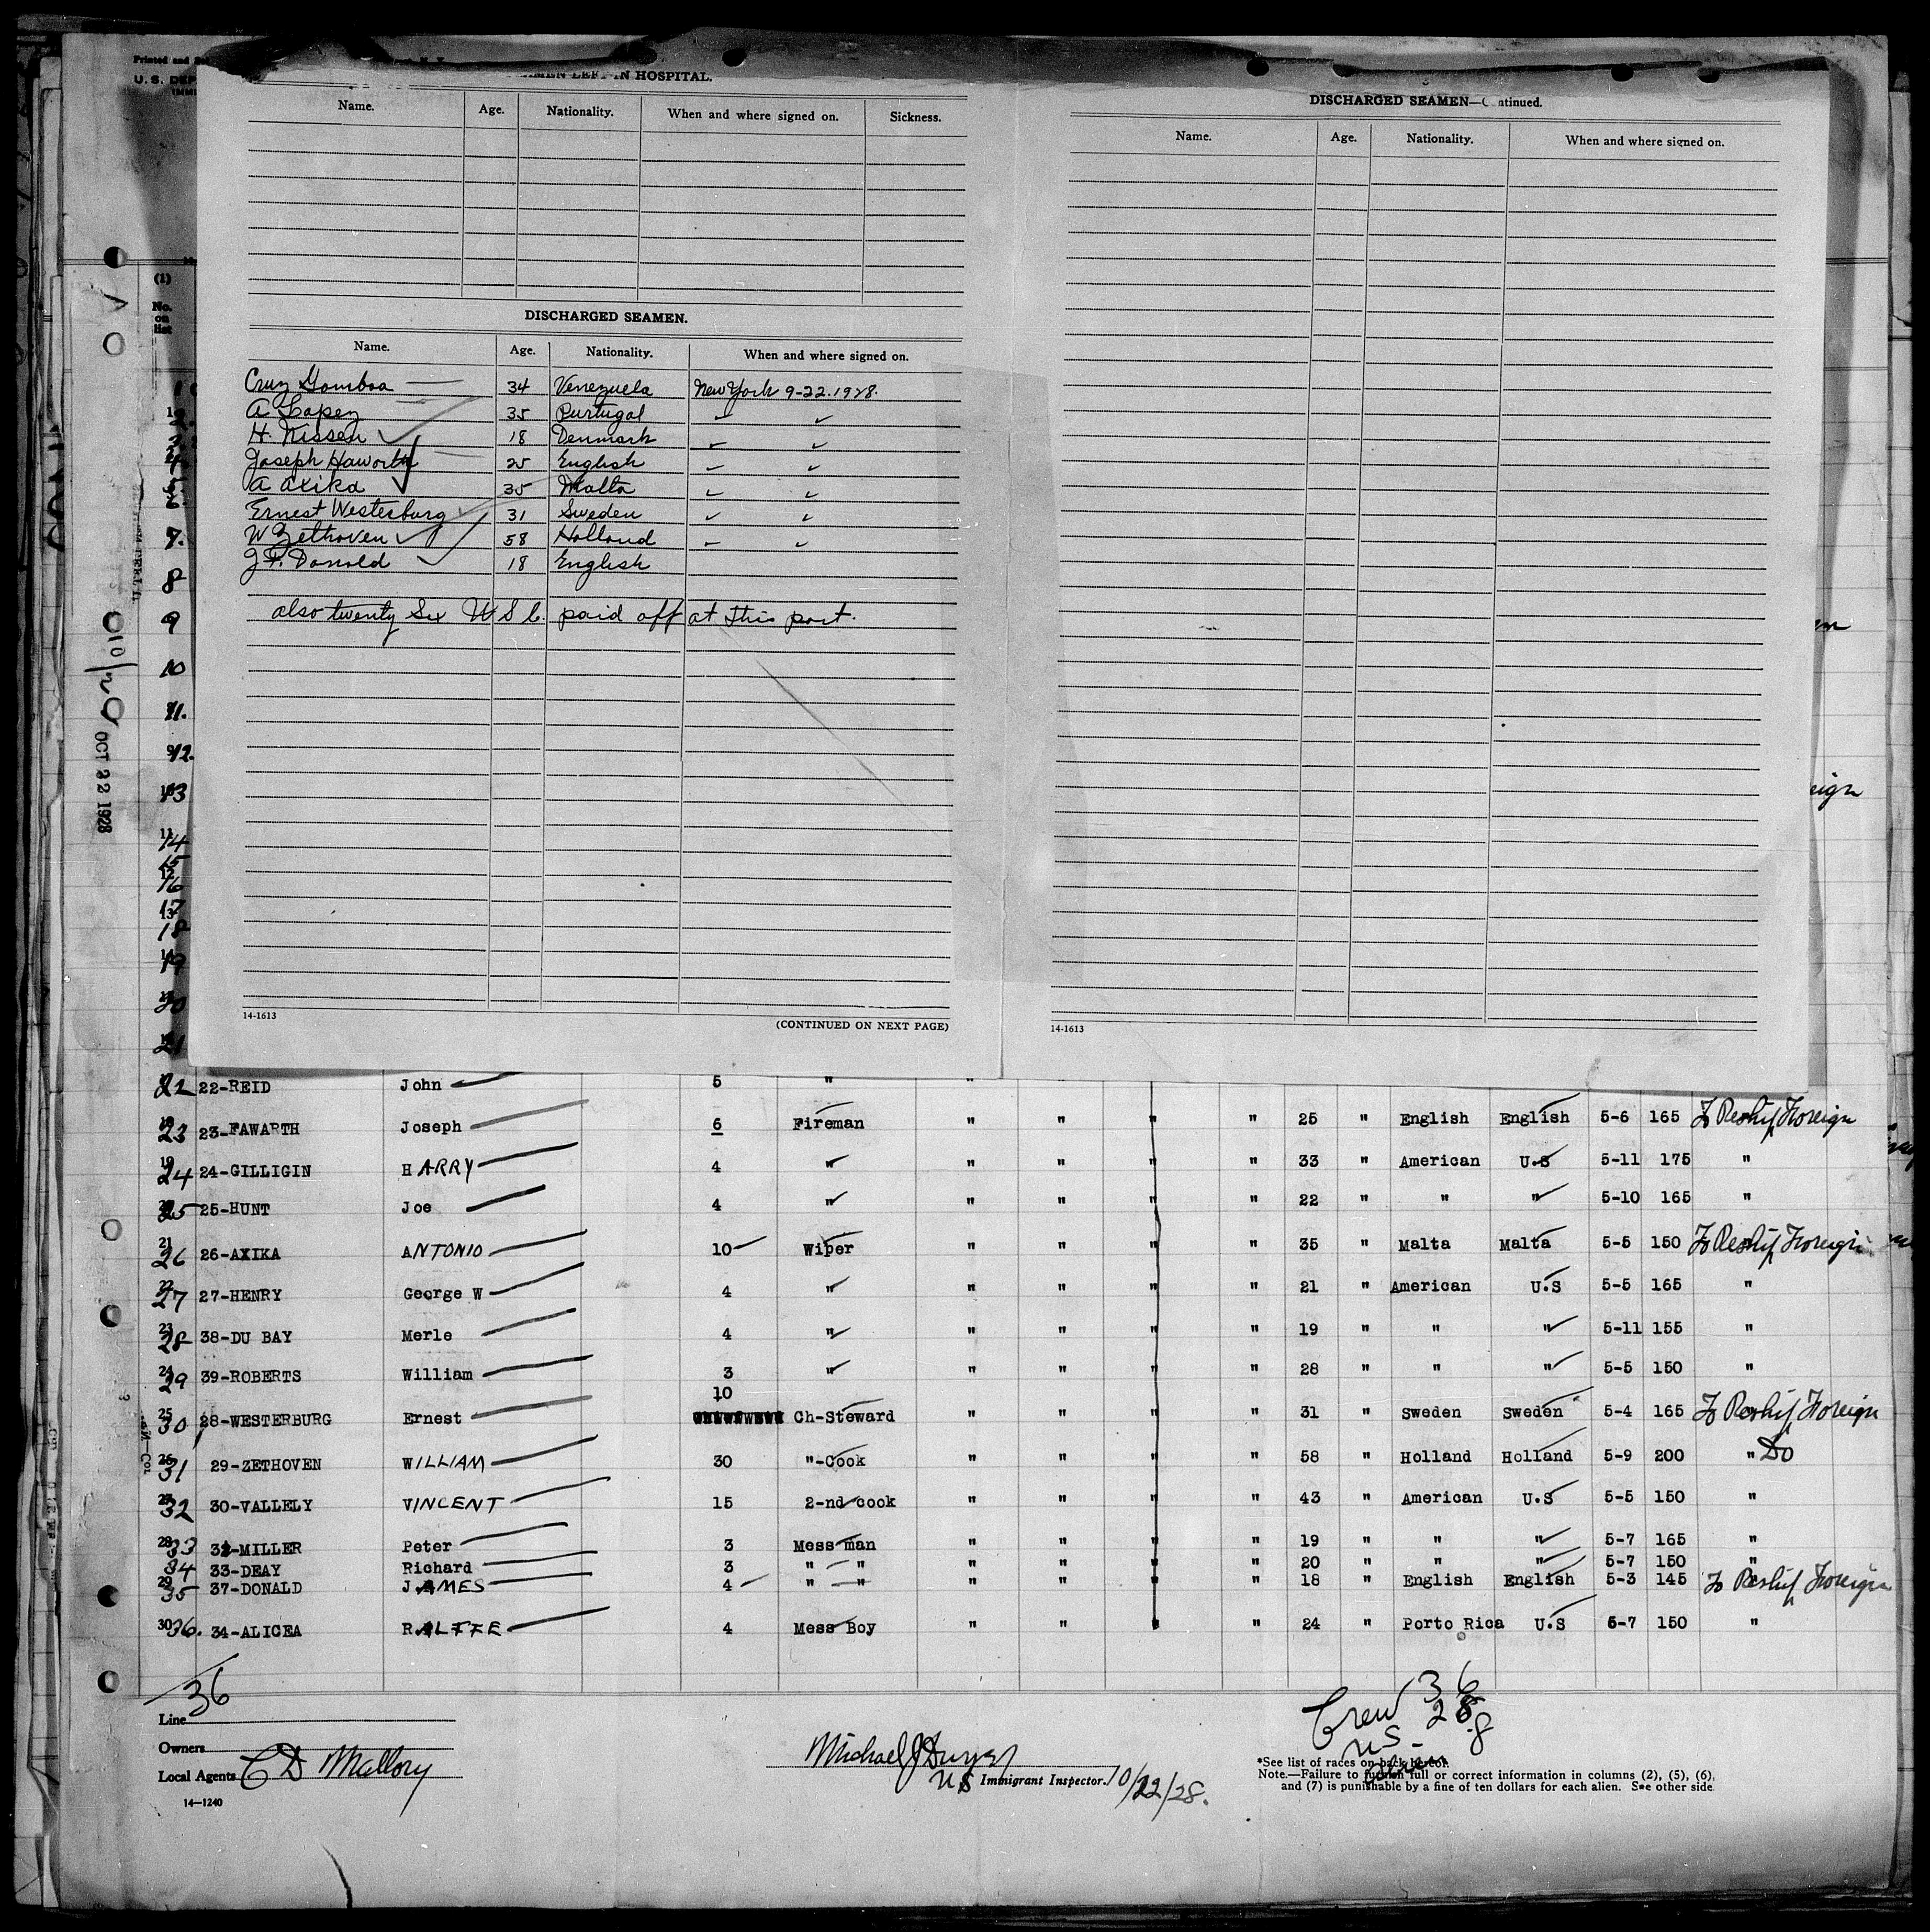 Printed and
U. S. DEP
IMMI
MEN LEFT IN HOSPITAL.
Name. Age. Nationality. When and where signed on. Sickness.
DISCHARGED SEAMEN.
Name. Age. Nationality. When and where signed on.
Cruz Gamboa 34 Venezuela New York 9-22.1928.
A Lopez 35 Purtugal
H. Nissen 18 Denmark
Joseph Haworth 25 English
A Axika 35 Malta
Ernest Westerburg 31 Sweden
W Zethoven 58 Holland
J F. Donald 18 English
also twenty Six U S C. paid off at this port.
14-1613
(CONTINUED ON NEXT PAGE)
DISCHARGED SEAMEN—Continued.
Name. Age. Nationality. When and where signed on.
14-1613
(1)
No.
on
list
OCT 22 1928
7.
8
9
10
11.
12.
13
14
15
16
17
18
19
20
21
22 22-REID John 5 "
23 23-FAWARTH Joseph 6 Fireman " " " " 25 " English English 5-6 165 To Reship Foreign
24 24-GILLIGIN HARRY 4 " " " " " 33 " American U.S 5-11 175 "
25 25-HUNT Joe 4 " " " " " 22 " " " 5-10 165 "
26 26-AXIKA ANTONIO 10 Wiper " " " " 35 " Malta Malta 5-5 150 To Reship Foreign
27 27-HENRY George W 4 " " " " " 21 " American U.S 5-5 165 "
28 38-DU BAY Merle 4 " " " " " 19 " " " 5-11 155 "
29 39-ROBERTS William 3 " " " " " 28 " " " 5-5 150 "
30 28-WESTERBURG Ernest 10 Ch-Steward " " " " 31 " Sweden Sweden 5-4 165 To Reship Foreign
31 29-ZETHOVEN WILLIAM 30 "-Cook " " " " 58 " Holland Holland 5-9 200 " Do
32 30-VALLELY VINCENT 15 2-nd cook " " " " 43 " American U.S 5-5 150 "
33 32-MILLER Peter 3 Mess man " " " " 19 " " " 5-7 165 "
34 33-DEAY Richard 3 " " " " " " 20 " " " 5-7 150 "
35 37-DONALD JAMES 4 " " " " " " 18 " English English 5-3 145 To Reship Foreign
36. 34-ALICEA RALFFE 4 Mess Boy " " " " 24 " Porto Rica U.S 5-7 150 "
36
Line
Owners
Local Agents C D Mallory
14—1240
Michael J Dwyer
US Immigrant Inspector. 10/22/28.
Crew 36
US 28
alien 8
*See list of races on back hereof.
Note.—Failure to furnish full or correct information in columns (2), (5), (6),
and (7) is punishable by a fine of ten dollars for each alien. See other side